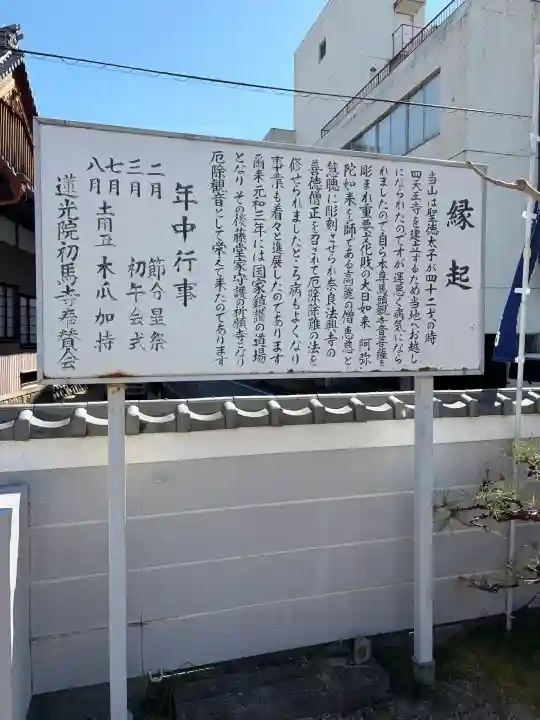 縁起
当山は聖徳太子が四十二才の時
四天王寺を建立するため当地へお越し
になられたのですが運悪く病気になら
れましたので自ら本尊馬頭観世音菩薩を
彫まれ重要文化財の大日如来 阿弥
陀如来を師である高麗の僧恵慈と
慧聰に彫刻させられ奈良法興寺の
善徳僧正を召されて厄除除難の法を
修せられましたところ病もよくなり
事業も着々と進展したのであります
爾来元和三年には国家鎮護の道場
となりその後藤堂家守護の祈願寺となり
厄除観音として栄えて来たのであります
年中行事
二月 節分星祭
三月 初午会式
七月
八月 土用丑 木瓜加持
蓮光院初馬寺奉賛会